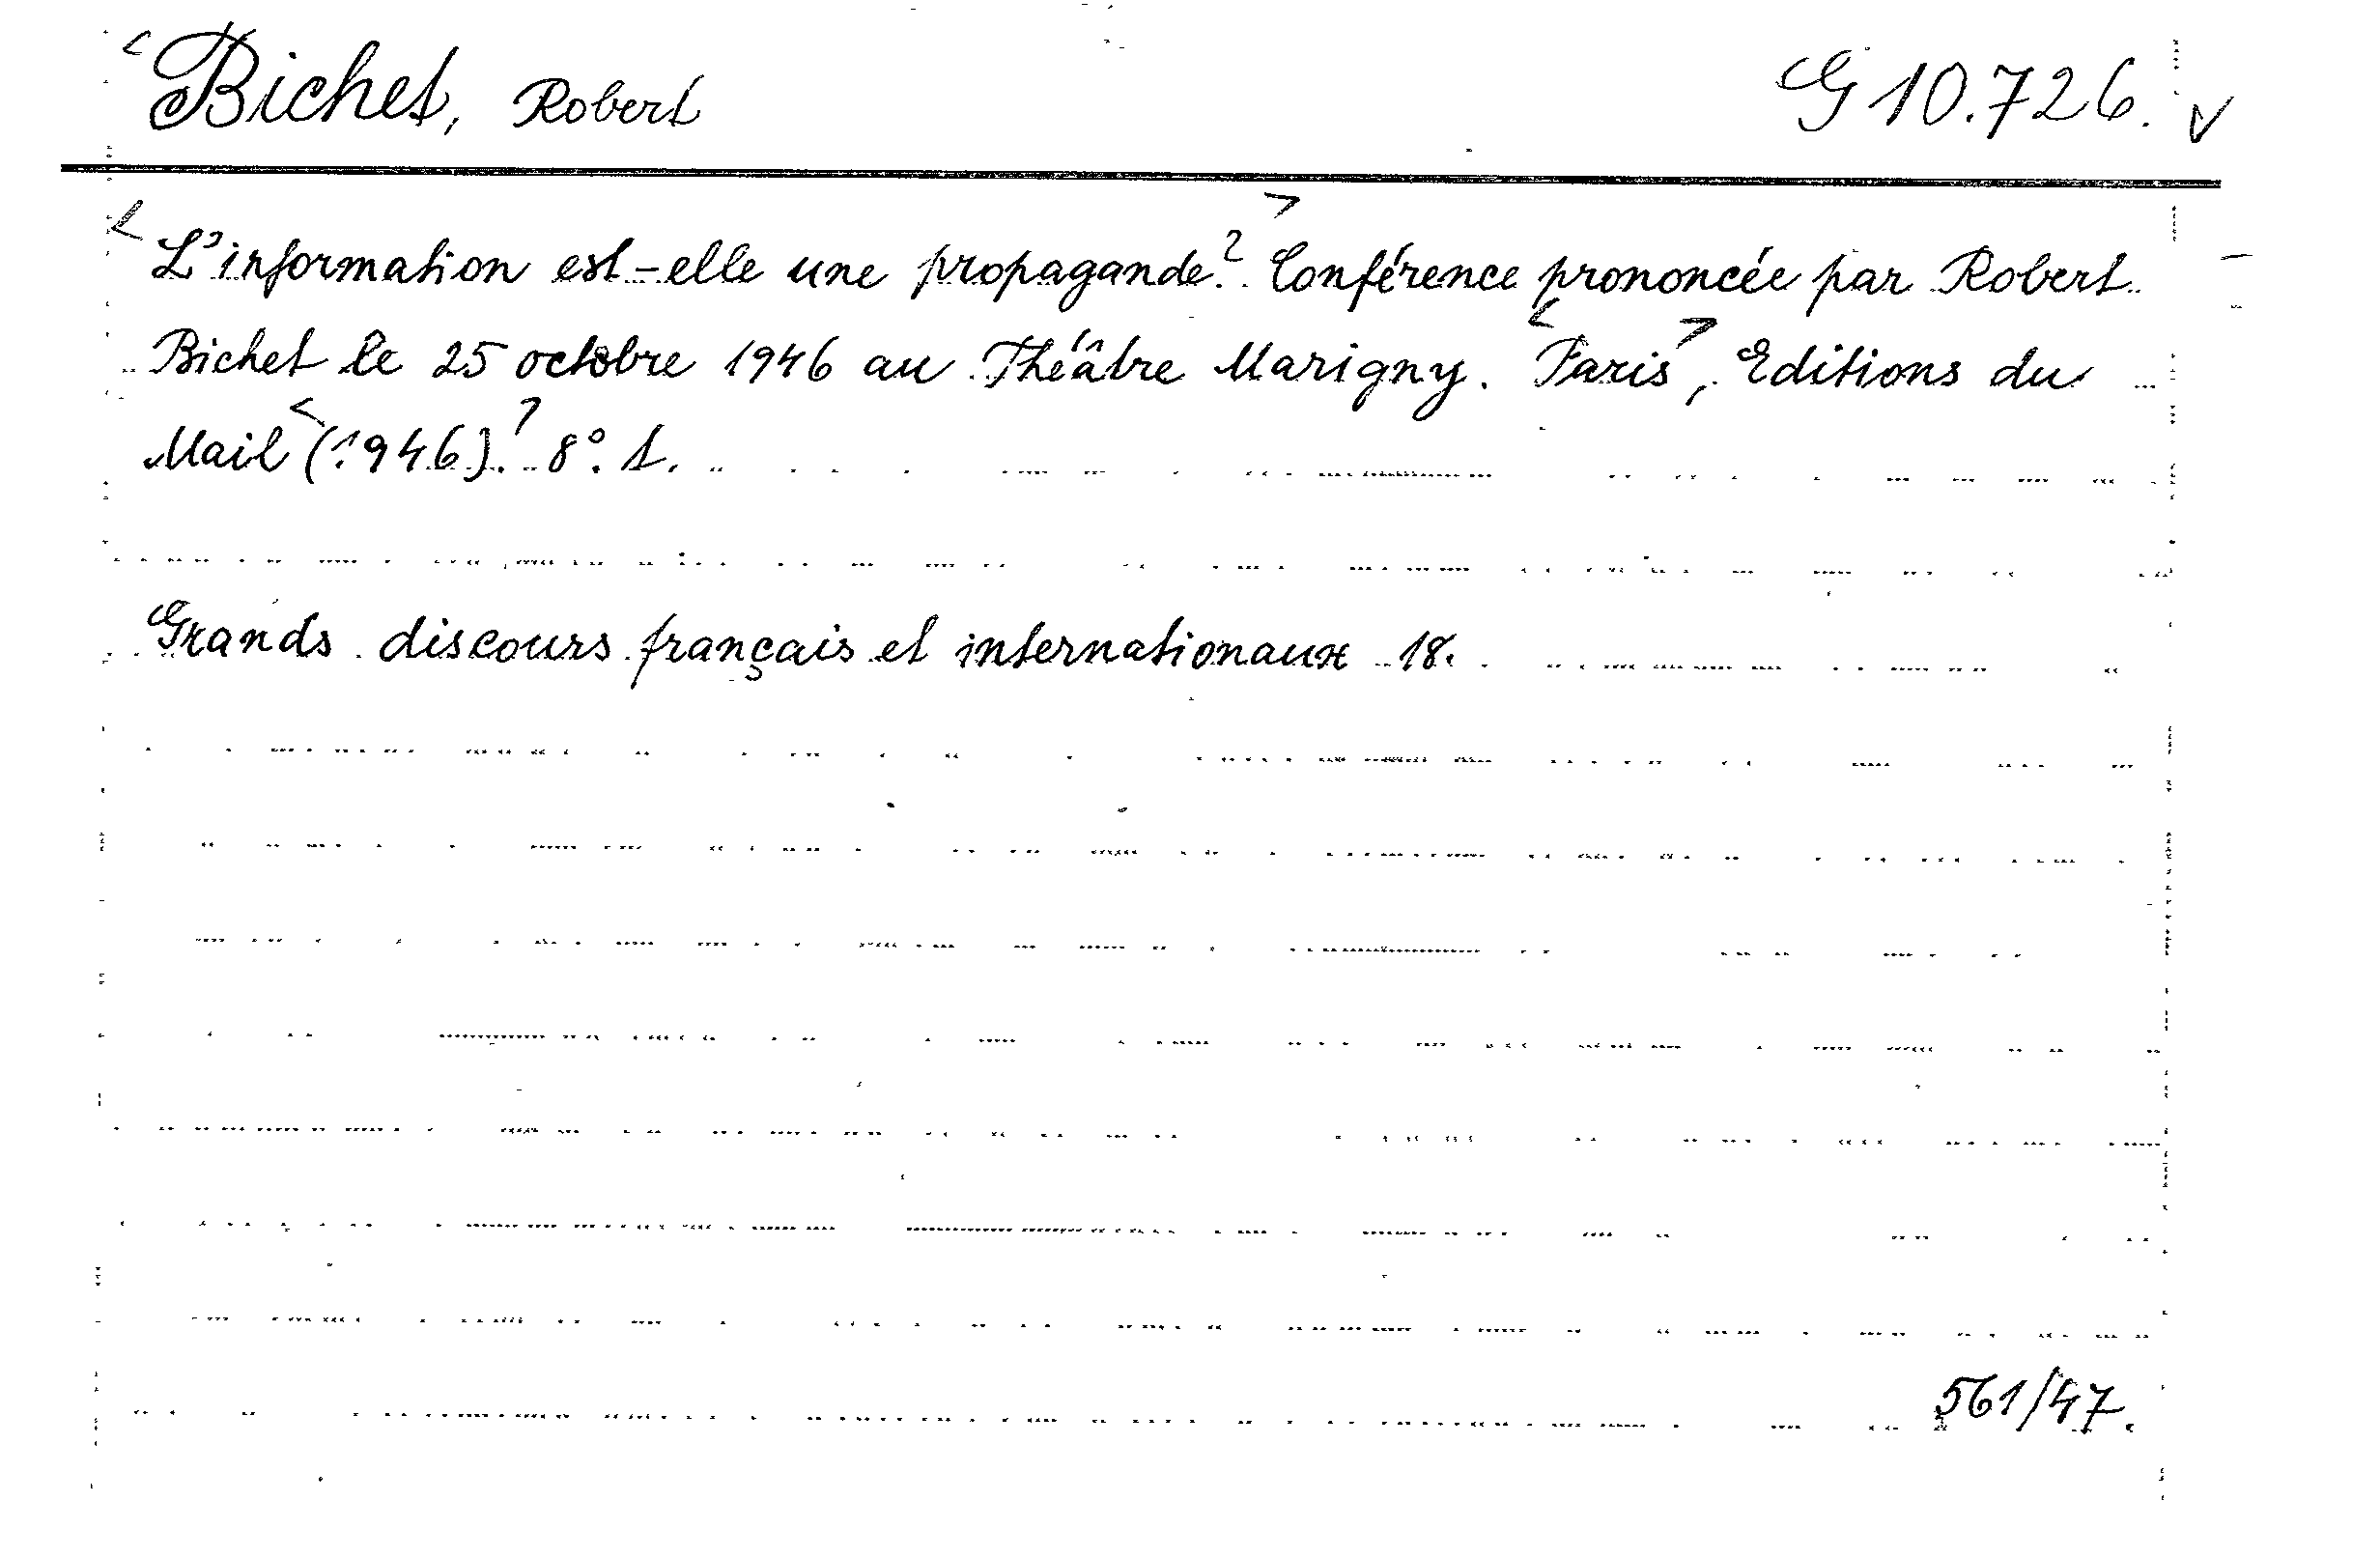 Bichet, Robert G 10.726.
L'information est-elle une propagande? Conférence prononcée par Robert
Bichet le 25 octobre 1946 au Théâtre Marigny. Paris, Editions du
Mail (1946). 8°. S.
Grands discours français et internationaux 18.
561/47.